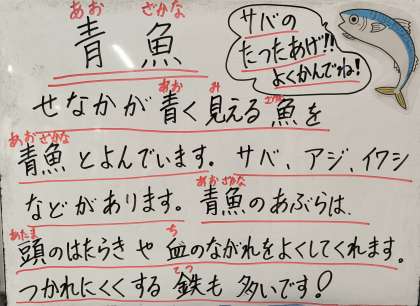 あお ざかな
青 魚
サバの
たったあげ!!
よくかんでね!
あお み
せなかが青く見える魚を
あおざかな
青魚とよんでいます。サバ、アジ、イワシ
あおざかな
などがあります。青魚のあぶらは、
あたま ち
頭のはたらきや血のながれをよくしてくれます。
てつ
つかれにくくする鉄も多いです!